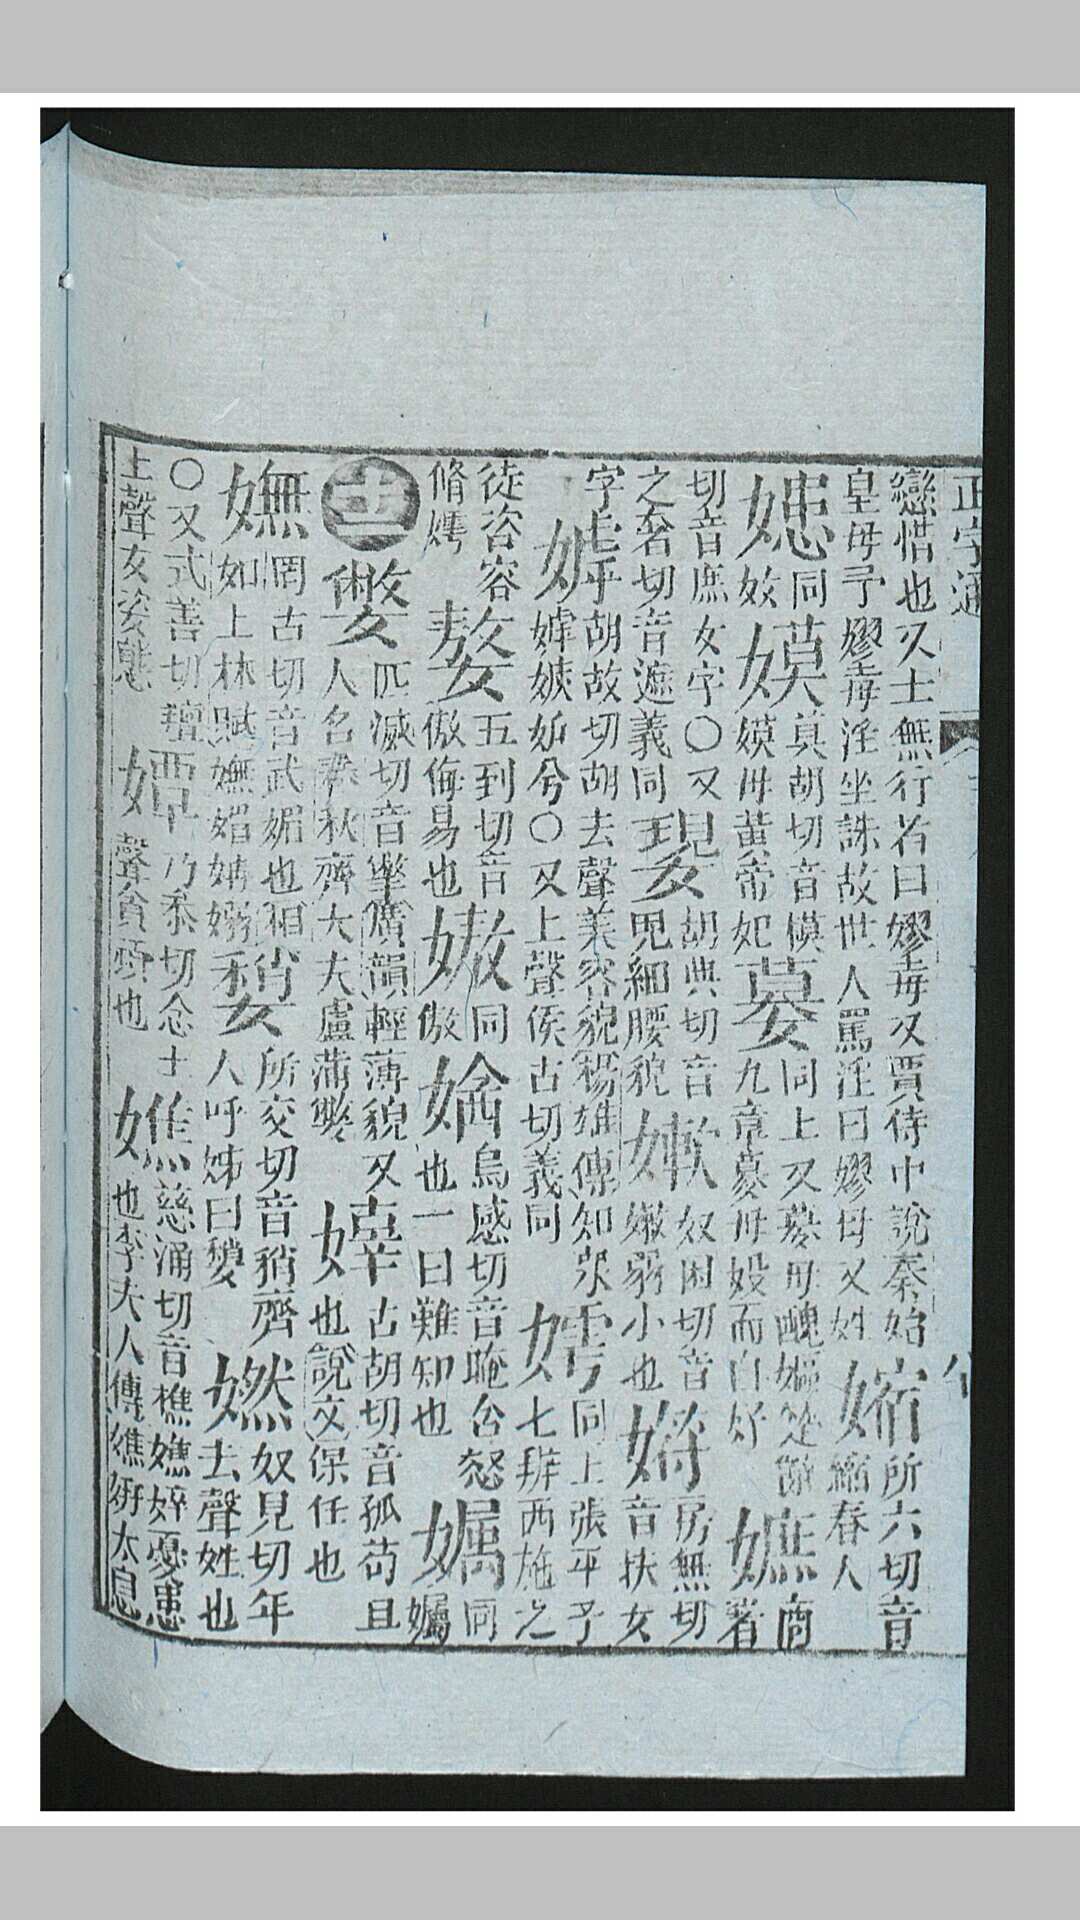 正字通
戀惜也又士無行者曰嫪毐又賈侍中說秦始
皇母予嫪毐淫坐誅故世人罵淫曰嫪母又姓
㜚所六切音
縮春人
嫕同
嫫莫胡切音模
嫫母黃帝妃
㜈同上又㜈母醜嫫
九章㜈母姣而自好
嫬商
奢切音庶女字〇又
之奢切音遮義同
䙺胡典切音
睍細腰貌
嫰奴困切音
嫩弱小也
㜑房無切
音扶女
字
嫭胡故切胡去聲美容貌楊雄傳知衆
嫭嫉妬兮〇又上聲侯古切義同
嫮同上張平子
七辯西施之
徒姿容
脩嫮
嫯五到切音
傲侮易也
嫩同
傲
媕烏感切音唵含怒
也一曰難知也
嬺同
孎
十二
嫳匹滅切音撆廣韻輕薄貌又
人名春秋齊大夫盧蒲嫳
嫴古胡切音孤苟且
也說文保任也
嫵罔古切音武媚也相
如上林賦嫵媚姌嫋
㛮所交切音稍齊
人呼姊曰㛮
嬿奴見切年
去聲姓也
〇又式善切䄠
上聲女姿態
㜤乃忝切念上
聲貪頑也
嫶慈消切音樵嫶妍憂患
也李夫人傳嫶妍太息